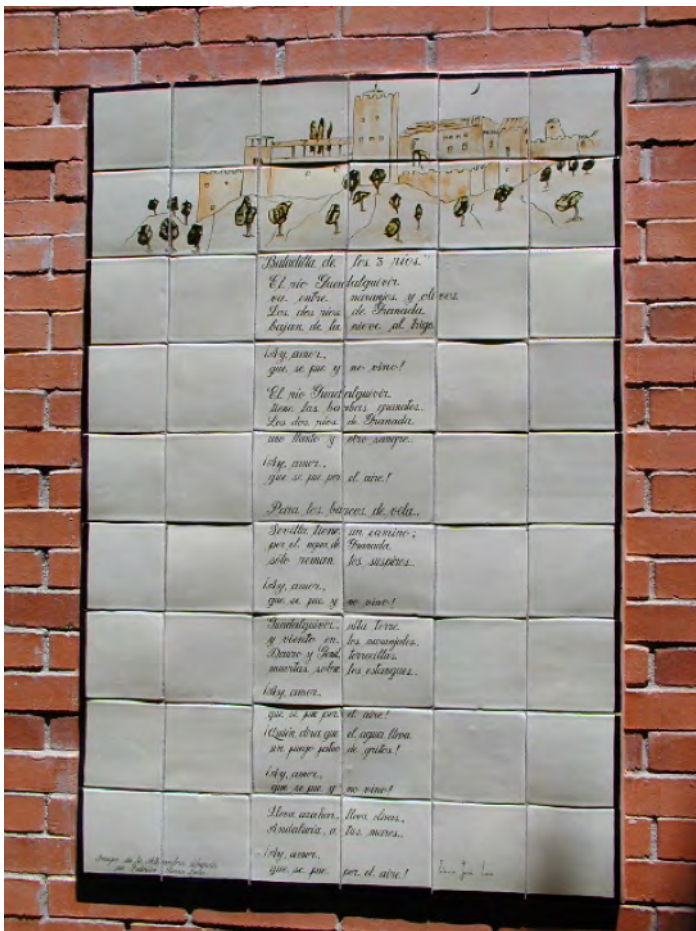 Baladilla de los 3 ríos"
El río Guadalquivir
va entre naranjos y olivos
Los dos ríos de Granada
bajan de la nieve al trigo
¡Ay, amor,
que se fue y no vino!
El río Guadalquivir
tiene las barbas granates.
Los dos ríos de Granada
uno llanto y otro sangre.
¡Ay, amor,
que se fue por el aire!
Para los barcos de vela,
Sevilla tiene un camino;
por el agua de Granada
sólo reman los suspiros.
¡Ay, amor,
que se fue y no vino!
Guadalquivir, alta torre
y viento en los naranjales.
Dauro y Genil, torrecillas
muertas sobre los estanques.
¡Ay, amor
que se fue por el aire!
¡Quién dirá que el agua lleva
un fuego fatuo de gritos!
¡Ay, amor,
que se fue y no vino!
Lleva azahar, lleva olivas,
Andalucía, a tus mares.
¡Ay, amor,
que se fue por el aire!
Imagen de la Alhambra dibujada
por Federico García Lorca